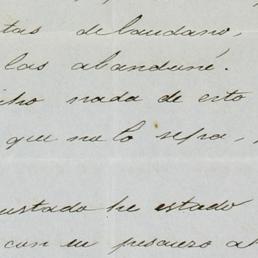 tas de laudano,
las abandoné.
cho nada de esto
que no lo sepa,
ustado he estado
con un pescuezo